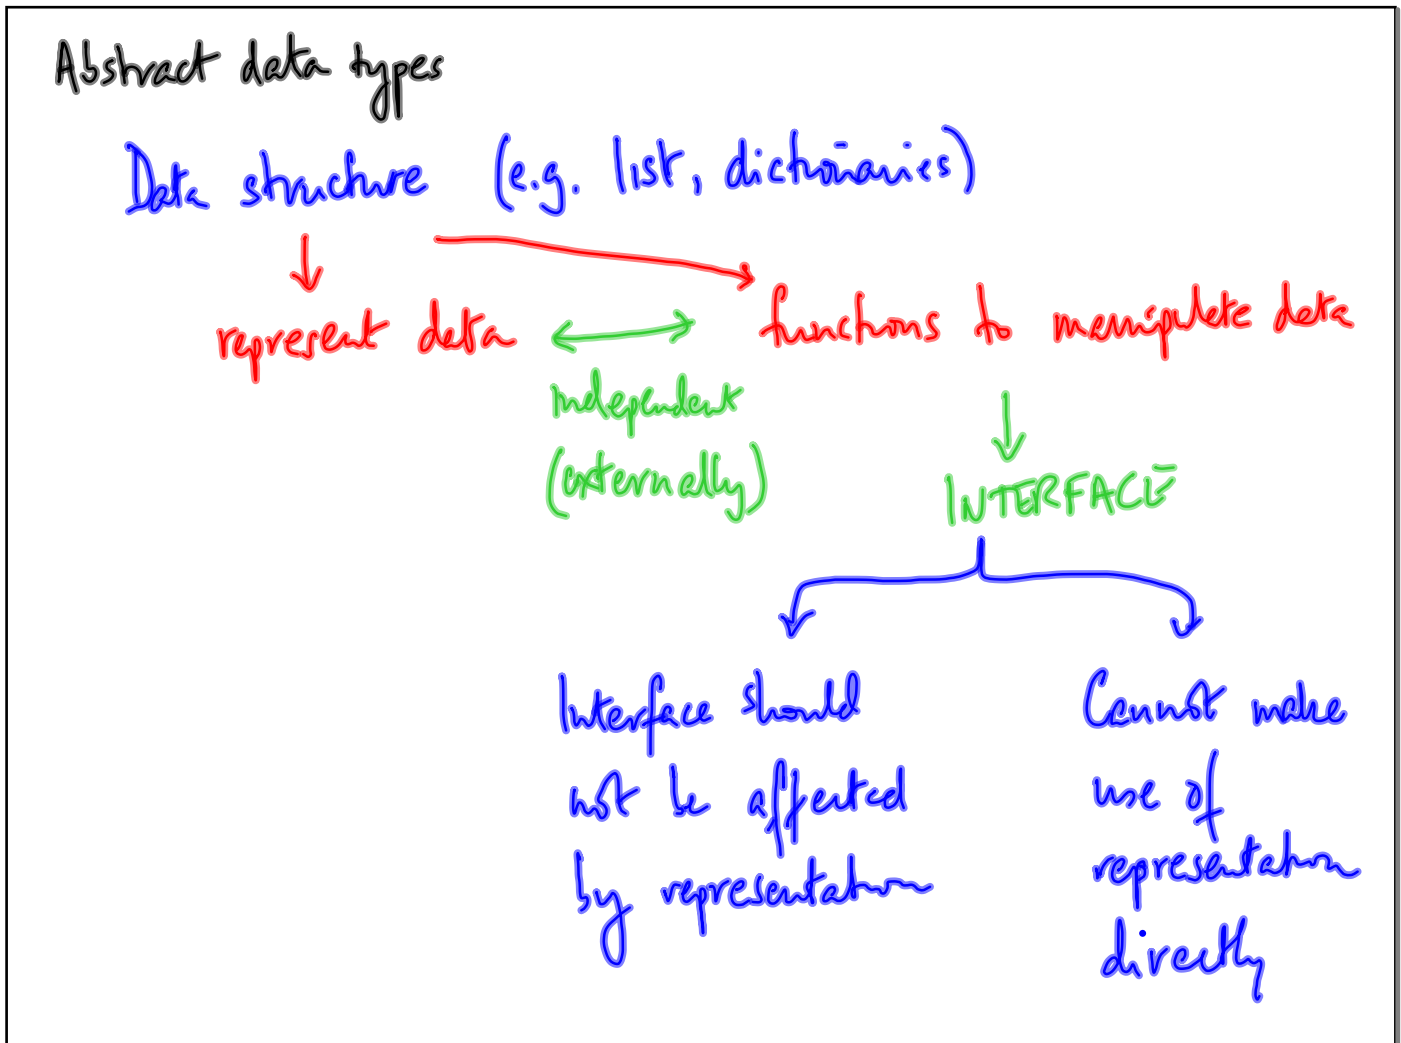 Abstract data types
Data structure (e.g. list, dictionaries)
represent data
functions to manipulate data
independent
(externally)
INTERFACE
Interface should
not be affected
by representation
Cannot make
use of
representation
directly